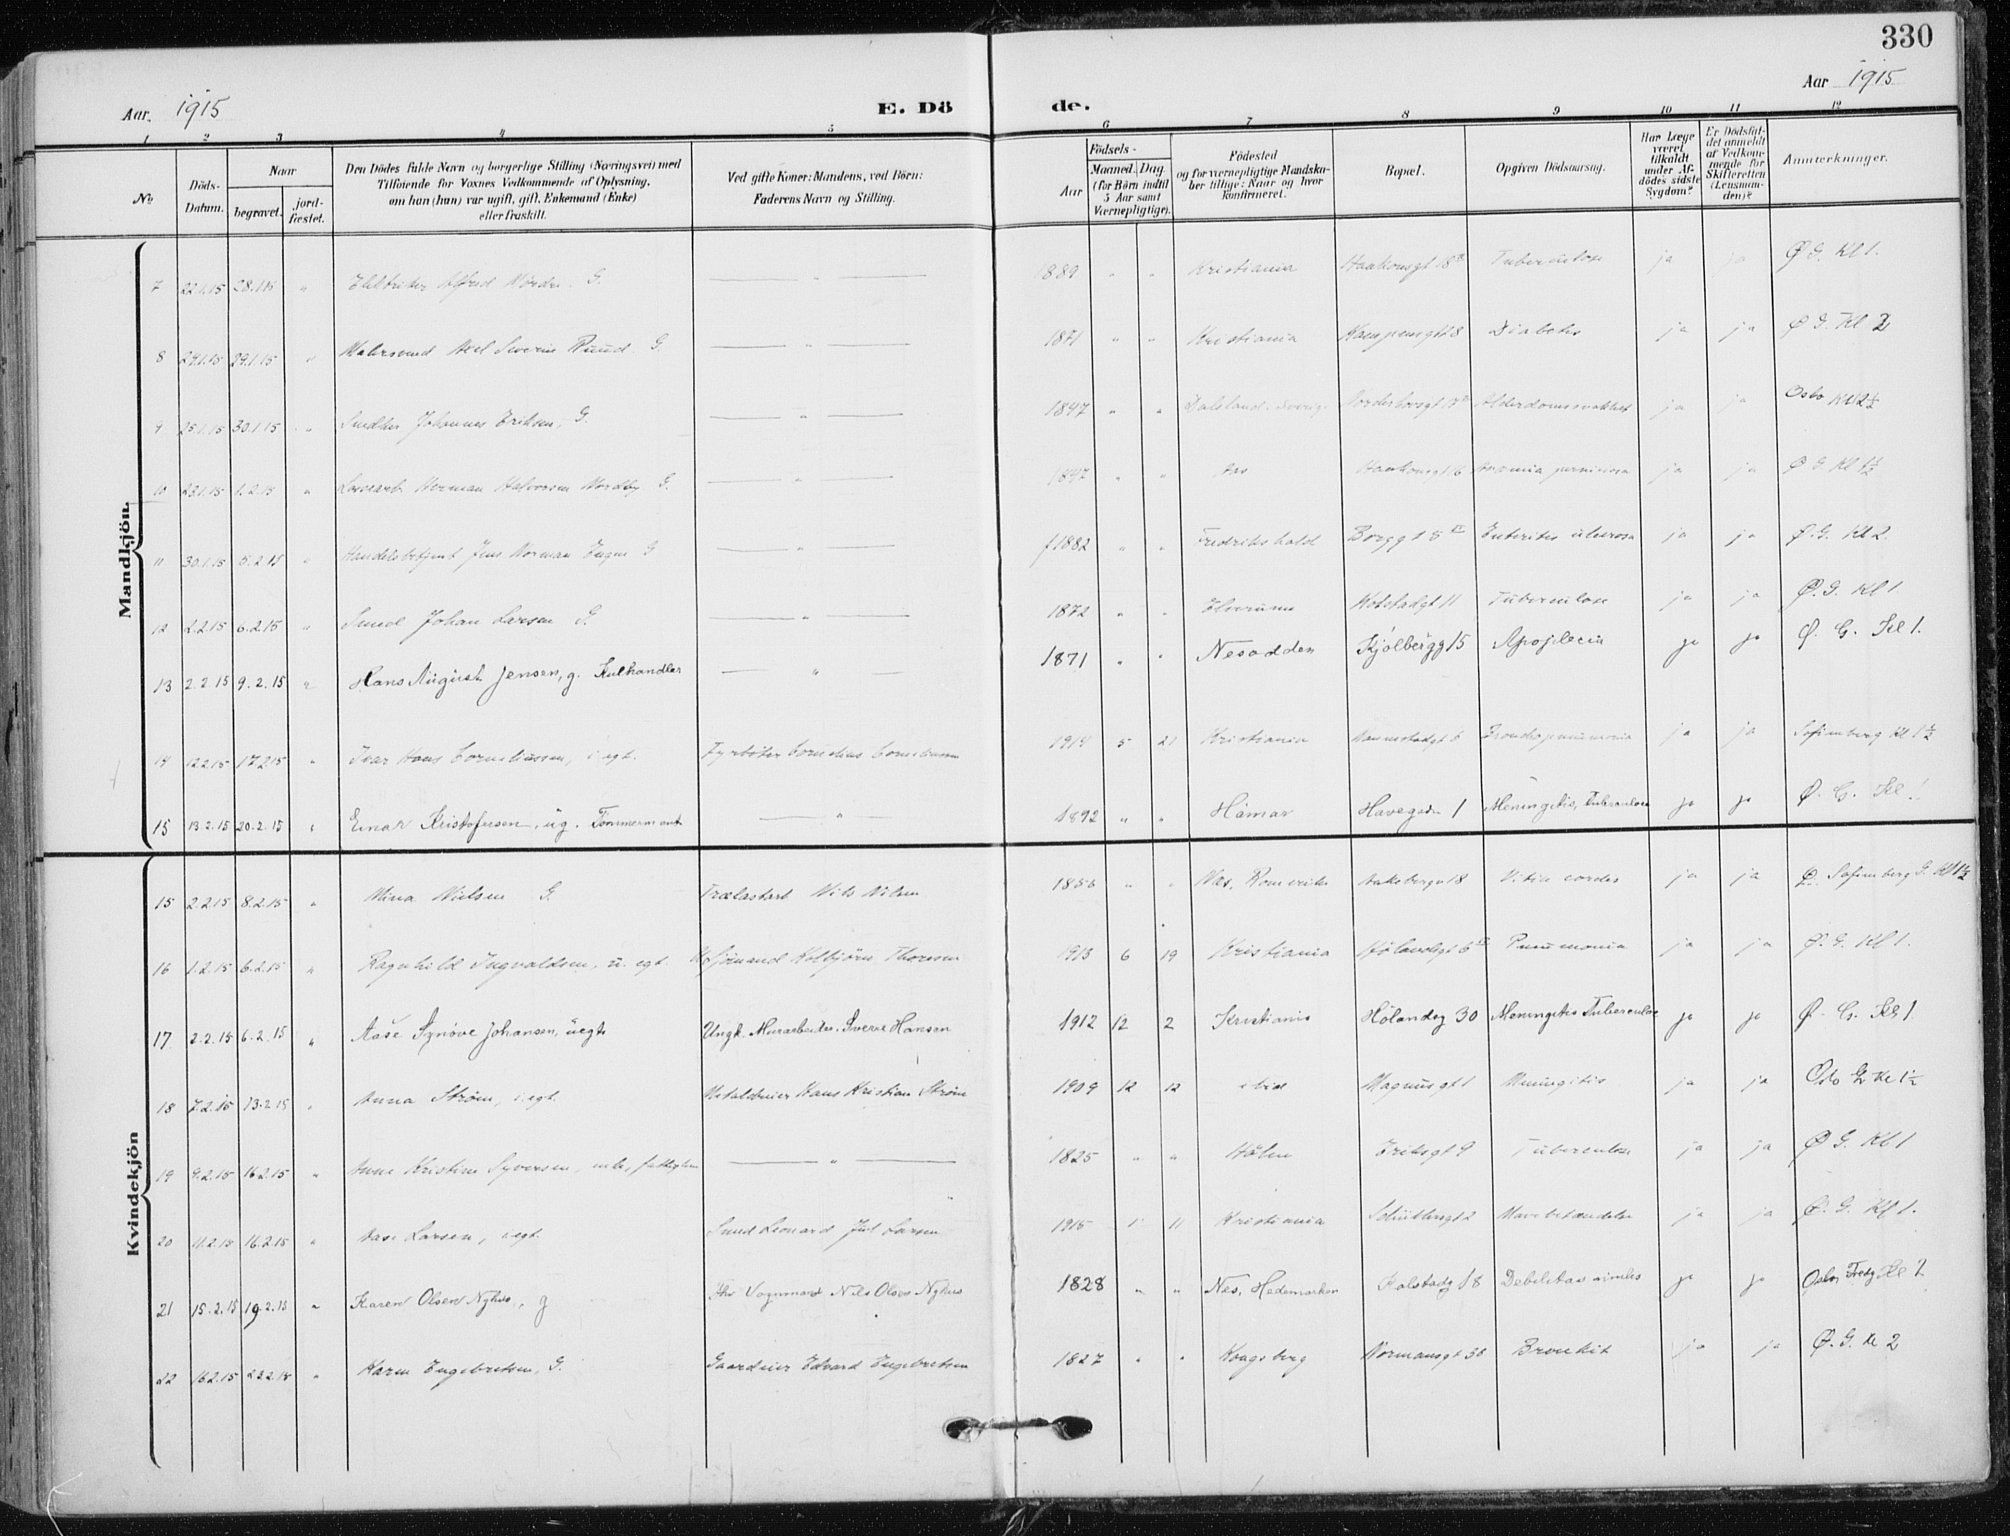 330
Aar 1915
Aar 1915
E. Döde.
1 2 3 4 5 6 7 8 9 10 11 12
No
Döds-Datum.
Naar
begravet.
jord-fæstet.
Den Dödes fulde Navn og borgerlige Stilling (Næringsvei) med
Tilföiende for Voxnes Vedkommende af Oplysning,
om han (hun) var ugift, gift, Enkemand (Enke)
eller fraskilt.
Ved gifte Koner: Mandens, ved Börn:
Faderens Navn og Stilling.
Födsels-
Aar
Maaned. Dag.
(for Börn indtil
5 Aar samt
Værnepligtige).
Födested
og for værnepligtige Mandskaber tillige: Naar og hvor
konfirmeret.
Bopæl.
Opgiven Dödsaarsag.
Har Læge
været
tilkaldt
under Afdödes sidste
Sygdom?
Er Dödsfaldet anmeldt
af Vedkommende for
Skifteretten
(Lensmanden)?
Anmerkninger.
Mandkjön.
7 22.1.15 28.1.15 " Alfred G. " 1889 " " Kristiania Haakonsgt 18 Tuberculose ja ja Ø. G. Kl 1.
8 24.1.15 29.1.15 " Axel Severin Ruud G. " 1871 " " Kristiania Kampensgt 18 Diabetes ja ja Ø G. Kl 2
9 25.1.15 30.1.15 " Snedker Johannes Eriksen, G. " 1847 " " Dalsland, Sverige Alderdomssvakhet ja ja Oslo Kl 2½
10 23.1.15 1.2.15 " Herman Halvorsen Nordby G. " 1847 " " Aas Haakonsgt 6 Anæmia perniciosa ja ja Ø G Kl 1½
11 30.1.15 5.2.15 " Handelsbetjent Jens Norman G " 1882 " " Fredrikshald Borgg Enteritis ulcerosa ja ja Ø. G. Kl 2.
12 2.2.15 6.2.15 " Smed Johan Larsen G. " 1872 " " Elverum Kolstadgt 11 Tuberculose ja ja Ø. G. Kl 1
13 2.2.15 9.2.15 " Hans August Jensen, g. Kulhandler " 1871 " " Nesodden Kjölbergg 15 Apoplecia ja ja Ø. G. Kl 1.
14 12.2.15 17.2.15 " Ivar Hans Corneliussen, i egt. Fyrbøter Cornelius Corneliussen 1914 5 21 Kristiania Bronchopneumonia ja ja Sofienberg Kl 1½
15 13.2.15 20.2.15 " Einar Kristofersen, ug. Tømmermand " 1892 " " Hamar Havegaden 1 Meningitis, Tuberculose ja ja Ø. G. Kl 1
Kvindekjön
15 2.2.15 8.2.15 " Mina Nielsen G. Trælastarb. Nils Nilsen 1856 " " Nes, Romerike Aakebergv 18 Vitia cordis ja ja Ø. Sofienberg G. Kl 1½
16 1.2.15 6.2.15 " Ragnhild Ingvaldsen, u. egt. Sjömand Kolbjörn Thoresen 1913 6 19 Kristiania Hölandsgt 6 Pneumonia ja ja Ø. G. Kl 1.
17 2.2.15 6.2.15 " Aase Synöve Johansen, uegte Ungk. Murarbeider Sverre Hansen 1912 12 2 Kristiania Hölandsg 30 Meningitis Tuberculose ja ja Ø. G. Kl 1
18 7.2.15 13.2.15 " Anna Strøm, i egt. Metaldreier Hans Kristian Strøm 1909 12 12 ibid Magnusgt 1 Meningitis ja ja Oslo G Kl 1½
19 9.2.15 16.2.15 " Anne Kristine Syversen, enke, fattiglem " 1825 " " Hölen Eriksgt 9 Tuberculose ja ja Ø G. Kl 1
20 11.2.15 16.2.15 " Aase Larsen, i egt. Smed Leonard Jul Larsen 1915 1 11 Kristiania Schüblersgt 2 Mavebetændelse ja ja Ø. G. Kl 1.
21 15.2.15 19.2.15 " Karen Olsen Nyhus, g Vognmand Nils Olsen Nyhus 1828 " " Nes, Hedemarken Kolstadg 18 Debilitas senilis ja ja Oslo Kl 2
22 16.2.15 23.2.15 " Karen Engebretsen, G. Gaardeier Edvard Engebretsen 1827 " " Kongsberg Normansgt 38 Bronkit ja ja Ø. G. Kl 2